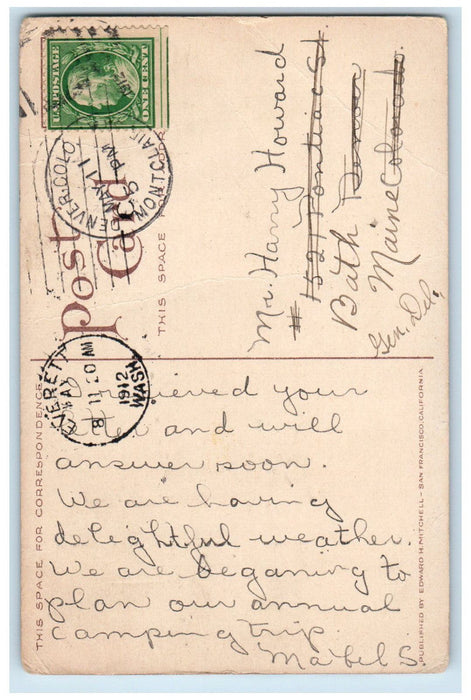 U.S. POSTAGE
ONE CENT
DENVER, COLO.
MAY 11
PM
MONTCLAIR
Post
Card
THIS SPACE
Mr. Harry Howard
# 1521 Pontiac St.
Bath Denver
Maine Colorado.
Gen. Del.
EVERETT
MAY
8
11 20 AM
1912
WASH.
THIS SPACE FOR CORRESPONDENCE
Received your
letter and will
answer soon.
We are having
delightful weather.
We are beganing to
plan our annual
camping trip
Mabel S.
PUBLISHED BY EDWARD H. MITCHELL – SAN FRANCISCO, CALIFORNIA